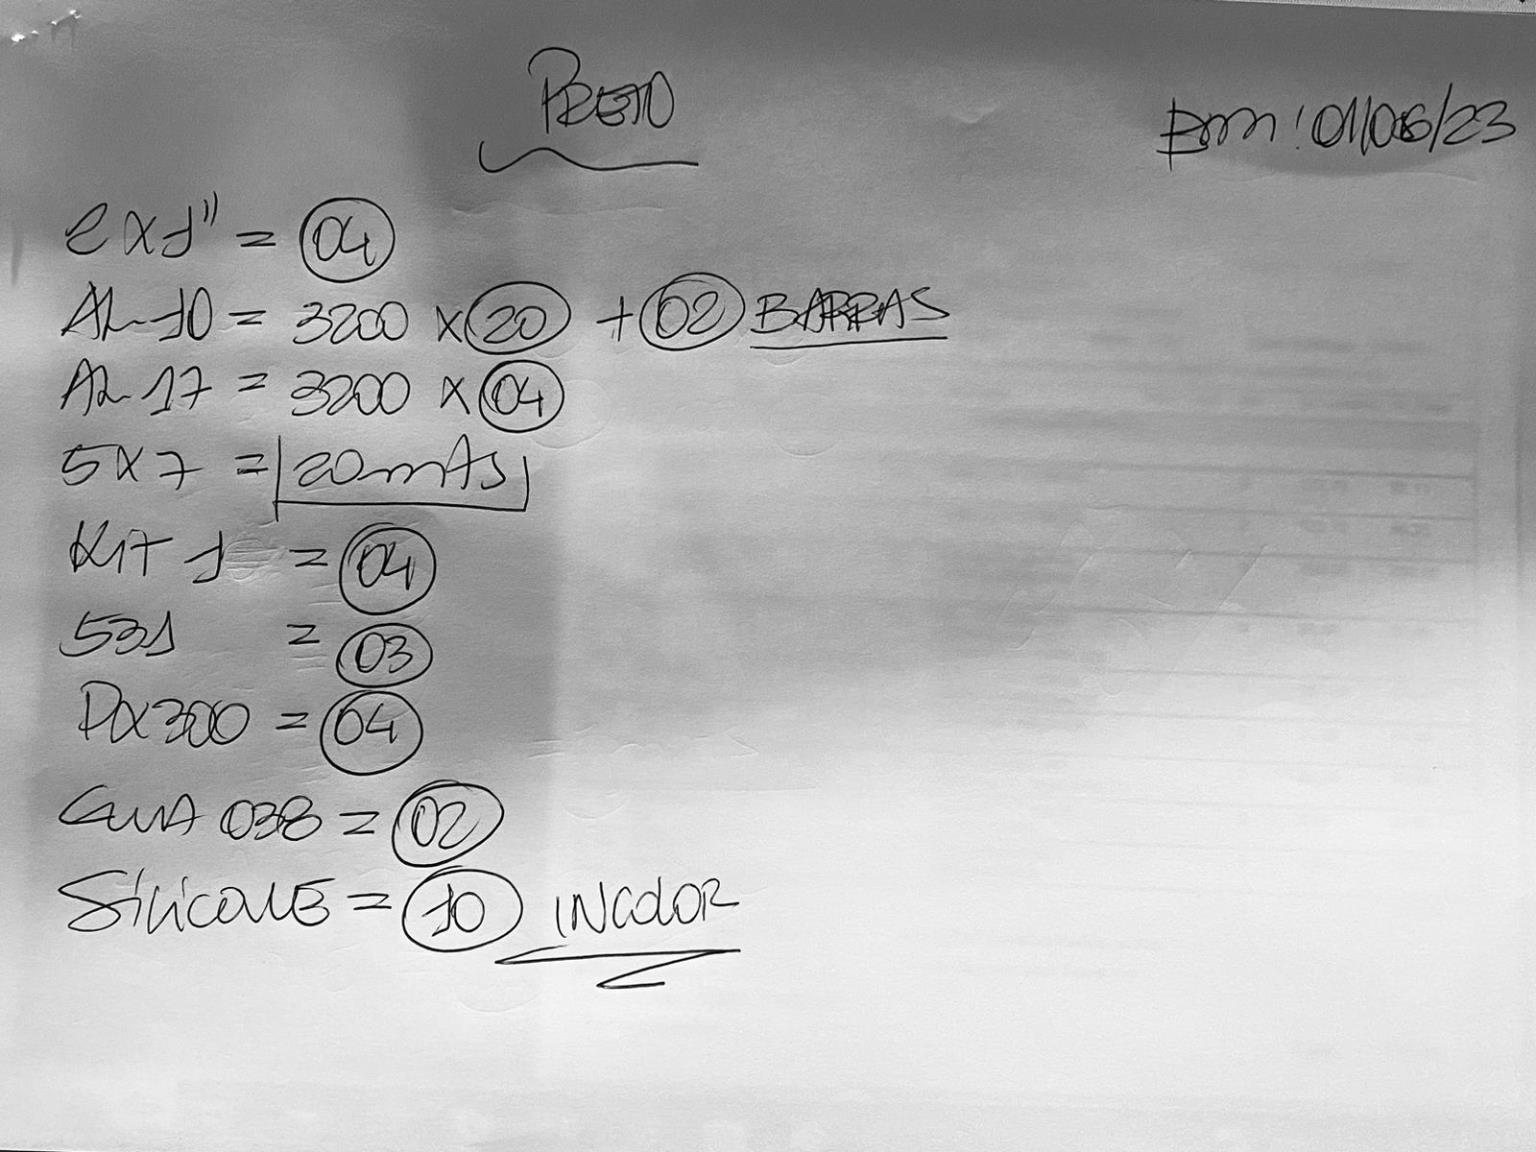 PRETO
01/06/23
ex1" = 04
AL-10 = 3200 x 20 + 02 BARRAS
AL 17 = 3200 x 04
5x7 = 20mts
KIT 1 = 04
531 = 03
Px300 = 04
GUIA 038 = 02
SiliconE = 10 INColOR